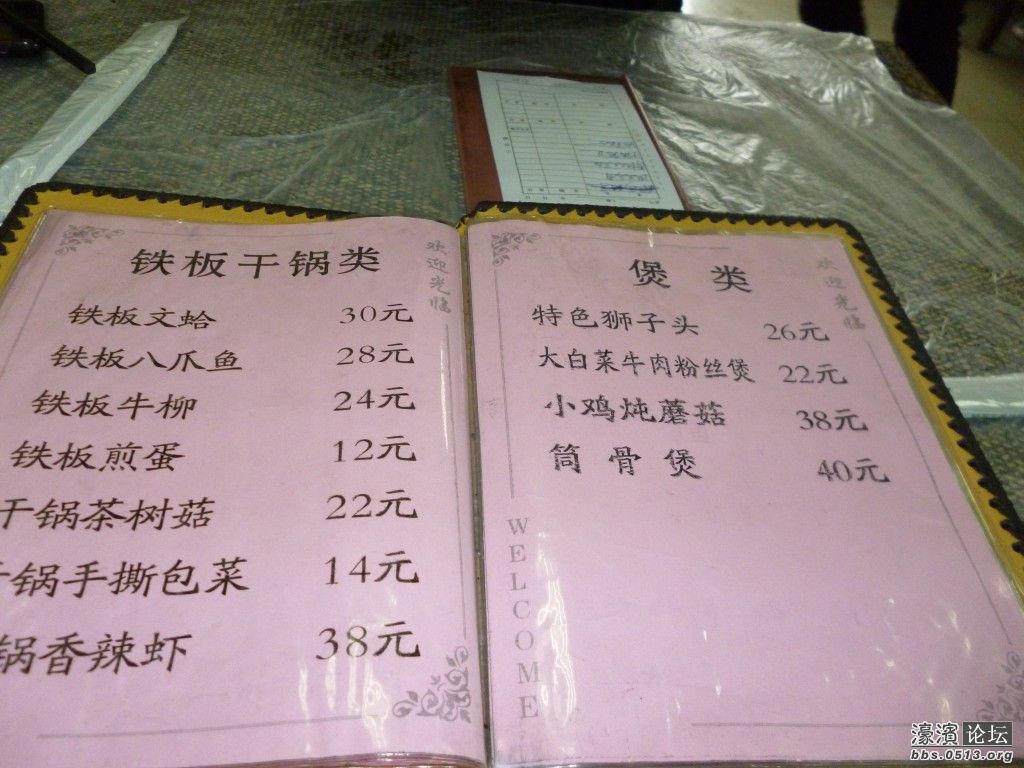 铁板干锅类
欢迎光临
铁板文蛤 30元
铁板八爪鱼 28元
铁板牛柳 24元
铁板煎蛋 12元
干锅茶树菇 22元
干锅手撕包菜 14元
锅香辣虾 38元
煲类
欢迎光临
特色狮子头 26元
大白菜牛肉粉丝煲 22元
小鸡炖蘑菇 38元
筒骨煲 40元
WELCOME
濠滨论坛
bbs.0513.org